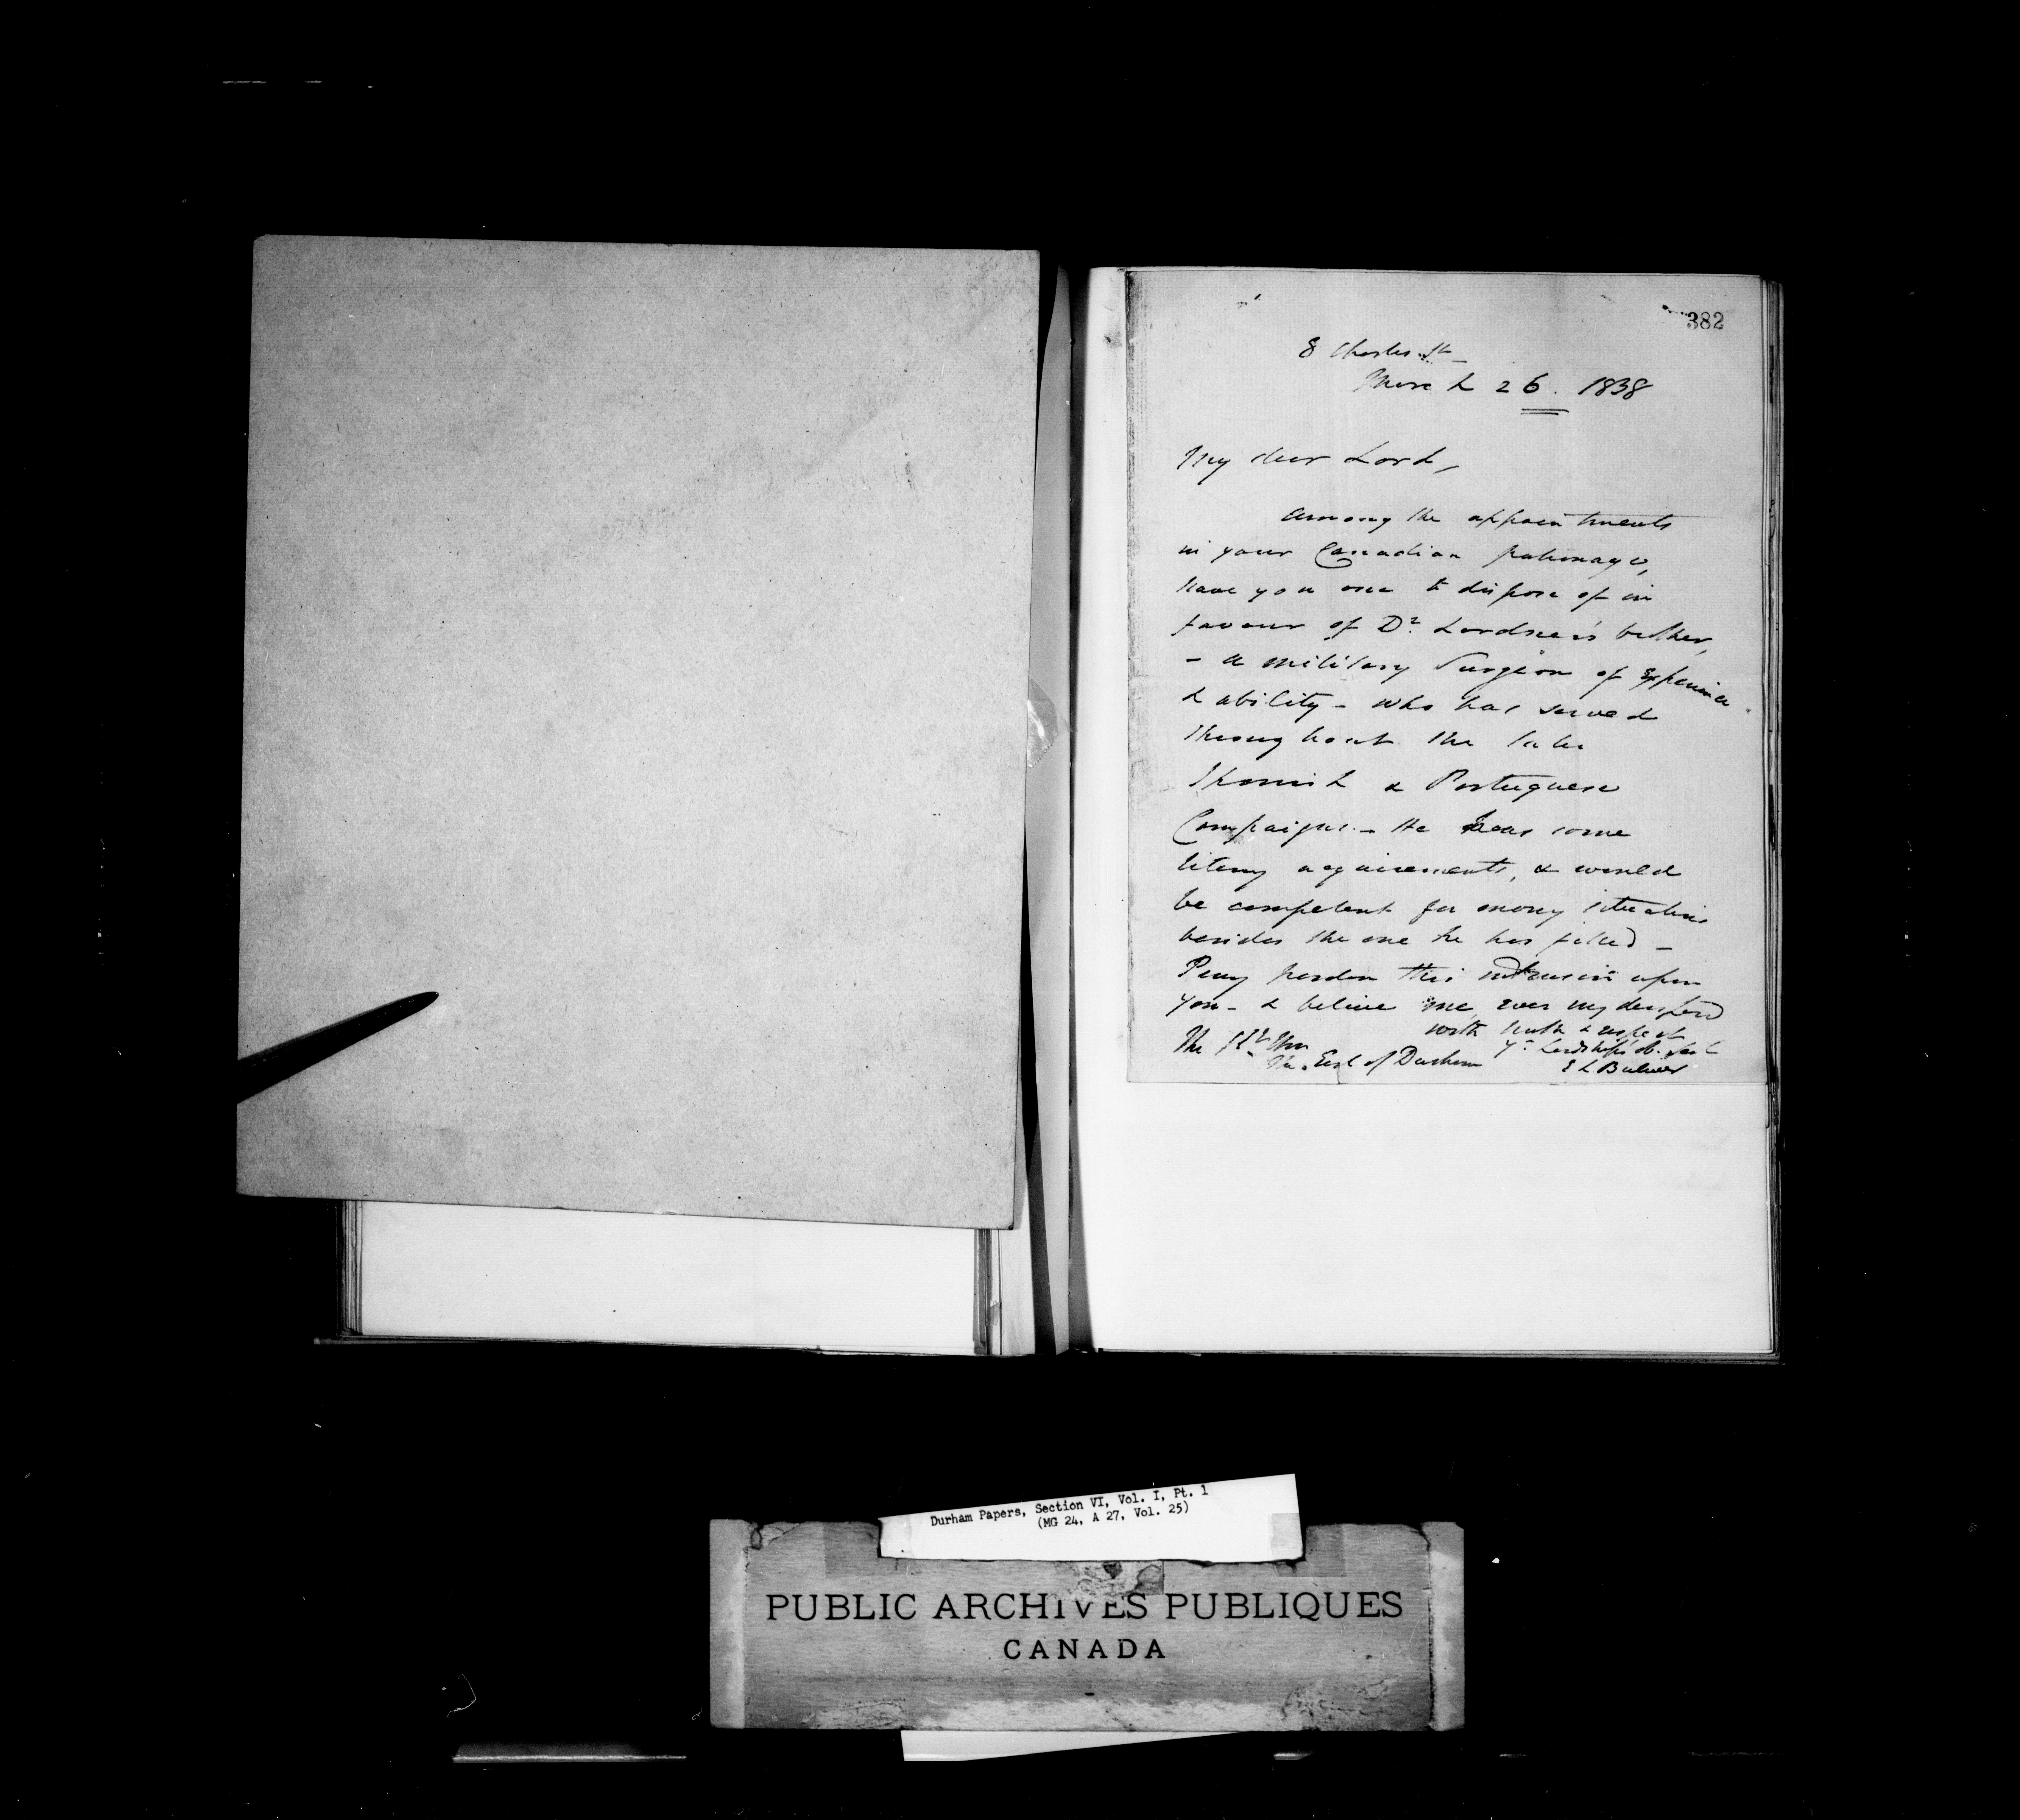 382
8 Charles St
March 26. 1838
My dear Lord,
Among the appointments
in your Canadian patronage,
have you one to dispose of in
favour of Dr. Lardner's brother,
- a military Surgeon of Experience
& ability - who has served
throughout the late
Spanish & Portuguese
Campaigns - He has some
literary acquirements, & would
be competent for many situations
besides the one he has filled -
Pray pardon this intrusion upon
you - & believe me, ever my dear Lord
with truth & respect
Yr Lordship's ob. Servt
E L Bulwer
The Rt Hon
The Earl of Durham
Durham Papers, Section VI, Vol. I, Pt. 1
(MG 24, A 27, Vol. 25)
PUBLIC ARCHIVES PUBLIQUES
CANADA